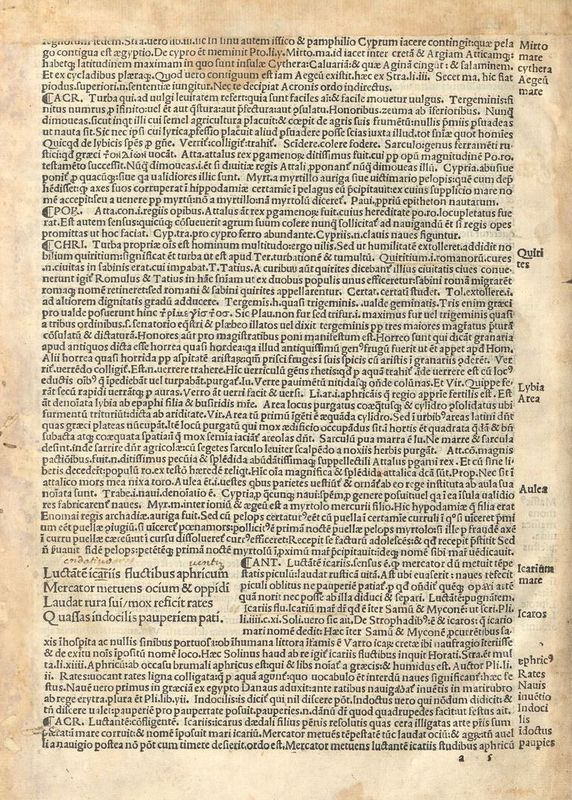 Stra.vero lib.iii.sic in sinu autem issico & pamphilio Cyprum iacere contingit:quæ pela
go contigua est ægyptio.De cypro et meminit Pto.li.v.Mirto.ma.id iacet inter cretā & Argiam Atticamq:
habetq latitudinem maximam in quo sunt insulæ Cythera:Caluaria:& quæ Aginā cingūt:& salaminem.
Et ex cycladibus plæraq.Quod vero contiguum est iam Aegeū existit.hæc ex Stra.li.iii. Secet ma. hic fiat
piodus.superiori.n.sententiæ iungitur.Nec te decipiat Acronis ordo indirectus.
¶ACR. Turba quia ad uulgi leuitatem refert:quia sunt faciles aīi:& facile mouetur uulgus. Tergeminis:fi
nitus numerus p infinito:uel et aut questura:aut præfectura:aut psulatu.Honoribus.zeuma ab inferioribus. Nunq
dimoueas.sicut inqt illi cui semel agricultura placuit:& cœpit de agris suis frumētum:nullis pmiis psuadeas
ut nauta sit.Sic nec ipsū cui lyrica pfessio placuit aliud psuadere posse scias iuxta illud.tot sūt aīæ quot homīes
Quicqd de lybicis spēs p gñe. Verrit.colligit:trahit. Scidere.colere fodere. Sarculo:genus ferramēti ru
stici:qd græci vocāt. Atta.attalus rex pgamenoꝝ ditissimus fuit.cui pp opū magnitudinē Po.ro.
testamēto successit.Nūq dimoueas.i.et si diuitiæ regis Attali pponant nūq dimoueas illū. Cypria.abusiue
ponit p quacūq:siue qa ualidiores illic sunt. Myrt.a myrtillo auriga siue uictimario pelopis:quē cum depre
hēdisset:q axes suos corruperat ī hippodamiæ certamīe ī pelagus eū pcipitauit:ex cuius supplicio mare no
mē accepit:seu a uenere pp myrtū:nā a myrtillo:nā myrtolū diceret. Paui.ppriū epitheton nautarum.
¶POR. Atta.con.i.regiis opibus.Attalus āt rex pgamenoꝝ fuit.cuius hereditate po.ro.locupletatus fue
rat.Est autem sensus:quicūq cōsueuerit agrum suum colere nunq sollicitat ad nauigandū et si regis opes
promittas ut hoc faciat. Cyp.tra.pro cypro ferro abundante. Cypriis.n.clauis naues figuntur.
¶CHRI. Turba propriæ oīs est hominum multitudo:ergo uilis. Sed ut humilitatē extolleret.addidit no
bilium quiritium:significat et turba ut est apud Ter.turbationē & tumultū. Quiritium.i.romanorū.cures
.n.ciuitas in sabinis erat.cui impabat.T.Tatius.A curibus aūt quirites dicebant illius ciuitatis ciues conue
nerunt igit Romulus & Tatius in hāc sniam ut ex duobus populis unus efficeret:sabini romā migrarēt
romaq nomē retineret:sed romani & sabini quirites appellarentur. Certat.certati studet. Tol.extolleret.i.
ad altiorem dignitatis gradū adducere. Tergemis.h.quasi trigeminis. .ualde geminatis.Tris enim græci
pro ualde posuerunt hinc Sic Plau.non fur sed trifur.i.maximus fur uel trigeminis quasi
a tribus ordinibus.s.senatorio eqstri & plæbeo illatos uel dixit tergeminis pp tres maiores magratus
cōsulatū & dictaturā.Honores aūt pro magistratibus poni manifestum est.Horreo sunt qui dicāt granaria
apud antiquos dicta esse horrea quasi hordea:qa illud antiquissimū gen⁹ frugū fuerit ut et appet apd Hom.
Alii horrea quasi horrida pp aspitatē arista:quā prisci fruges ī suis spicis cū aristis ī granariis
rit.uerrēdo colligit.Est.n.uerrere trahere.Hic uerriculū gēus rhetis:qd p aquā trahit āde uerrere est
eductis oib⁹ q īpediebāt uel turpabāt.purgat.Iu. Verre pauimētū nitidasq ōnde colūnas.Et Vir.Quippe fe
rāt secū rapidi uerrātq p auras.Verro āt uerri facit & uersi. Li.ar.i.aphricaīs q regio apprīe fertilis est. Est
āt denoīata lybia ab epaphi filia & busiridis mr̄e. Area locus purgatus coæqtusq & cylidro psolidatus ubi
frumentū trituriūt:dicta ab ariditate.Vir.Area tū primū īgēti ē æquāda cylidro.Sed ī urbib⁹ areas latini dn̄t
quas græci plateas nūcupāt.Itē locū purgatū qui mox ædificio occupādus sit:ī hortis et quadrata qdā & bn̄
subacta atq coæquata spatia:ī q mox semīa iaciāt areolas dn̄t. Sarculū pua marra ē Iu.Ne marre & sarcula
desint.inde sarrire dn̄t agricolæ:cū segetes sarculo leuiter scalpēdo a noxiis herbis purgāt. Att.cō.magnis
pactiōibus.fuit.n.ditissimus pecūia & splēdida abūdatissimaq suppellectili Attalus pgani rex. Et cū sine li
beris decederet:populū ro.ex testō hæredē reliqt.Hic oīa magnifica & splēdida attalica dcā sūt.Prop.Nec sit ī
attalico mors mea nixa toro.Aulea ēt.i.uestes qbus parietes uestiūt & ornāt ab eo rege instituta ab aula sua
noīata sunt. Trabe.i.naui.denoīatio ē. Cypria.p qcunq naui:spēm p genere posuit:uel qa ī ea īsula ualidio
res fabricarent naues. Myr.m.inter ioniū & ægeū est a myrtolo mercurii filio.Hic hypodamiæ q filia erat
Enomai regis archadiæ.auriga fuit.Sed cū pelops certatur⁹ eēt cū puella certamīe curruli q sū uiceret pmiū
um eēt puellæ piugiū.si uiceret pœnamors:pollicit⁹ ē primā noctē puellæ pelops myrtolo:si ille p fraudē axē
ī curru puellæ cæreū:ut ī cursu dissolueret cur⁹ efficeret:Recepit se facturū adolescēs:& qd recepit pstitit Sed
nō seruauit fidē pelops:petētēq primā noctē myrtolū ī primū mar pcipitauit:ideq nome sibi mar uēdicauit.
Luctātē icariis fluctibus aphricum
Mercator metuens ocium & oppidi
Laudat rura sui/mox reficit rates
Quassas indocilis pauperiem pati.
¶ANT. Luctātē icariis.sensus ē.q mercator dū metuit tēpe
statis piculū:laudat rusticā uitā.Ast ubi euaserit ī naues reficit
piculi oblitus ne pauperiē patiat p qd ōndit quēq opari aitē
quā norit nec posse ab illa diduci & sepati. Luctātē pugnātem.
Icariis flu.Icariū mar dr̄ qd ē iter Samū & Myconē ut scri.Pli.
li.iiii.c.xi.Soli.uero sic ait.De Strophadib⁹ ē & icaros:q icario
mari nomē dedit:Hæc iter Samū & Myconē pcurrētibus sa
xis īhospita ac nullis sinibus portuosa:ob īhumana littora īfamis ē Varro icaꝝ cretæ ibi naufragio īteriisse
& de exitu noīs īpositū nomē loco.Hæc Solinus haud ab re igit icariis fluctibus inquit Horati.Stra.et mul
ta.li.xiiii.Aphricū:ab occasu brumali aphricus est:qui & libs noīat a græcis:& humidus est. Auctor Pli.li.
ii. Rates:uocant rates ligna colligata:q p aquā agunt:quo uocabulo et interdū naues significant:hæc Fe
stus.Naue uero primus in græciā ex egypto Danaus aduxit:ante ratibus nauigabat inuētis in mari rubro
ab rege erytra.plura ēt Pli.lib.vii. Indocilis:is dicit qui nil discere pōt.Indoctus uero qui nōdum didicit:&
tn̄ discere ualet:pauperiē pro paupertate posuit.pauperies.n.dānū:dr̄ quod quadrupedes faciunt festus ait.
¶ACR. Luctantē:cōfligentē. Icariis:icarus dædali filius pēnis resolutis quas cera illigatas arte pris sum
pserat:ī mare corruit:& nomē īposuit mari icariū.Mercator metuēs tēpestatē tūc laudat ociū:& agratū auel
li a nauigio postea nō pōt cum timere desierit.ordo est.Mercator metuens luctantē icariis studibus aphricū
a s
Mirto
mare
cythera
Aegeū
mare
Quiri
tes
Lybia
Area
Aulea
Icarium
mare
Icaros
Rates
Nauis
inuētio
Indoci
lis
īdoctus
paupies